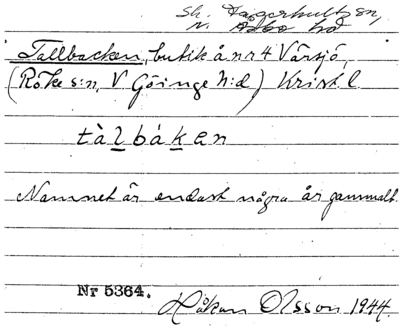 Sk. Fagerhults sn,
N. Åsbo hd
Tallbacken, butik å nr 4 Vårsjö,
(Röke s:n, V Göinge h:d) Krist. l
tàlbáken
Namnet är endast några år gammalt.
Nr 5364.
Håkan Olsson 1944.